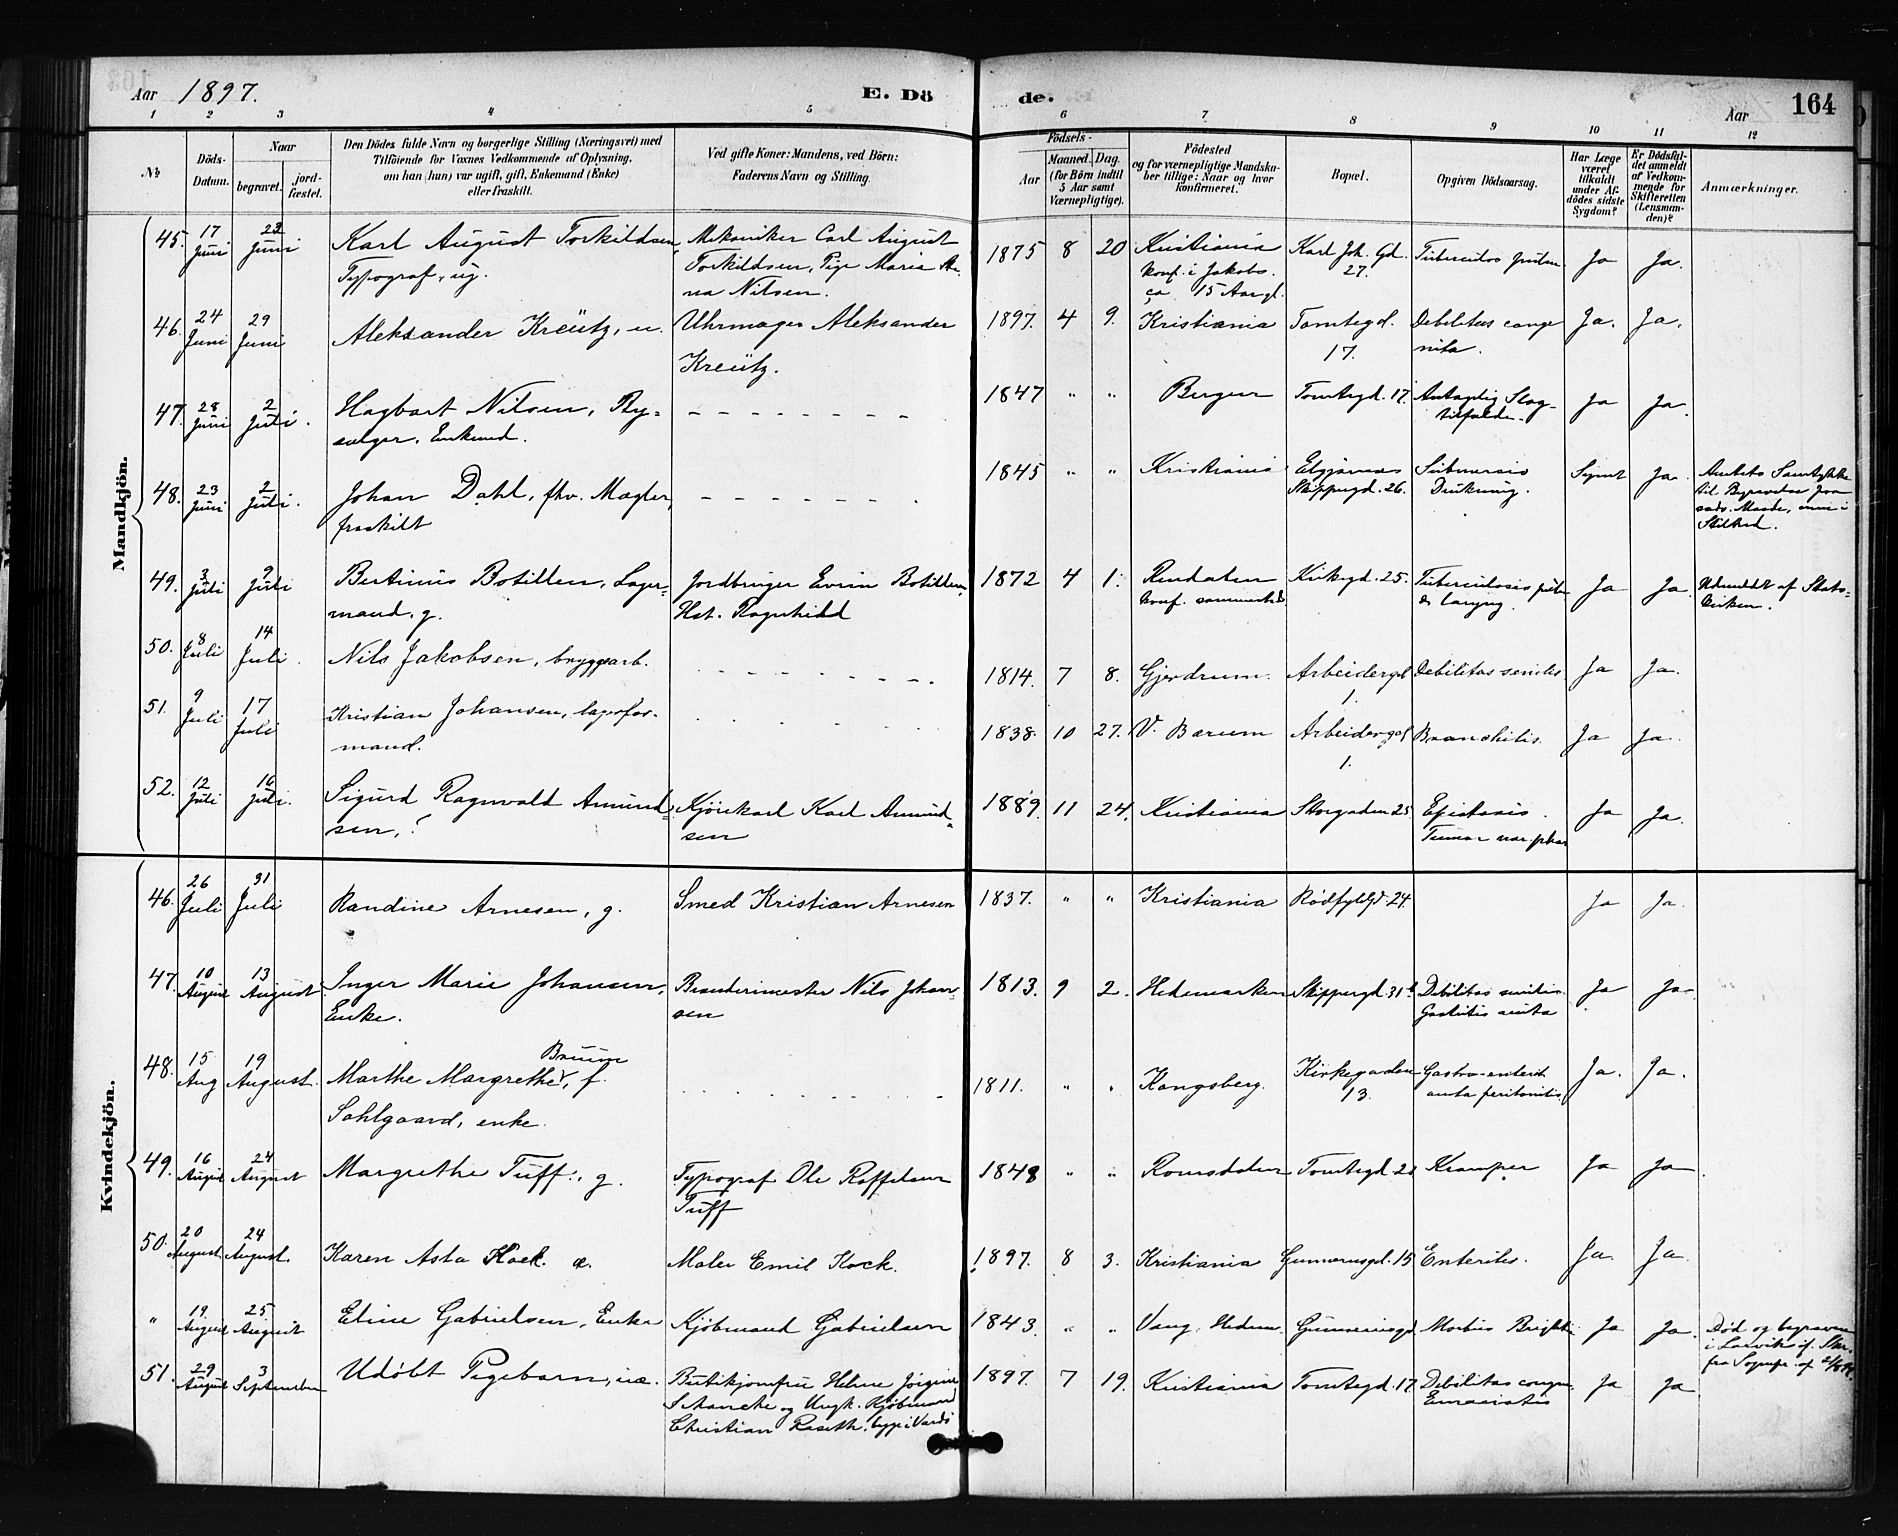 Aar 1897.
E. Dö
de.
Aar
164
1 2 3 4 5 6 7 8 9 10 11 12
No
Döds-
Datum.
Naar
begravet.
jord-
fæstet.
Den Dödes fulde Navn og borgerlige Stilling (Næringsvei) med
Tilföiende for Voxnes Vedkommende af Oplysning,
om han (hun) var ugift, gift, Enkemand (Enke)
eller fraskilt.
Ved gifte Koner: Mandens, ved Börn:
Faderens Navn og Stilling.
Födsels-
Aar
Maaned. Dag.
(for Börn indtil
5 Aar samt
Værnepligtige).
Födested
og for værnepligtige Mandska-
ber tillige: Naar og hvor
konfirmeret.
Bopæl.
Opgiven Dödsaarsag.
Har Læge
været
tilkaldt
under Af-
dödes sidste
Sygdom?
Er Dödsfal-
det anmeldt
af Vedkom-
mende for
Skifteretten
(Lensman-
den)?
Anmærkninger.
Mandkjön.
45. 17 Juni 22 Juni Karl August Torkildsen, Mekaniker Carl August 1875 8 20 Kristiania Karl Joh. Gd. Tuberculos pulm. Ja Ja.
Typograf, ug. Torkildsen, Pige Maria An- konf. i Jakobs. 27.
na Nilsen. ca 15 Aar gl.
46. 24 Juni 29 Juni Aleksander Kreütz, u. Uhrmager Aleksander 1897. 4 9. Kristiania Tomtegd. Debilitas conge Ja. Ja.
Kreütz. 17. nita.
47. 28 Juni 2 Juli. Hagbart Nilsen, By- 1847 " " Bergen Tomtegd. 17. Antagelig Slag- Ja Ja.
sælger, Enkemd. tilfælde.
48. 23 Juni 2 Juli. Johan Dahl, fhv. Mægler, 1845 " " Kristiania Skippergd. 26. Submersio Synet Ja. Amtets Samtykke
fraskilt Drukning. til Begravelse paa
sadv. Maade, men i
Stilhed.
49. 3 Juli 9 Juli Bertinius Botillen, Lager- Jordbruger Botillen, 1872 4 1. Rendalen Kirkegd. 25. Tuberculosis pulm Ja Ja. Udmeldt af Stats-
mand, g. Hst. Ragnhild konf. sammesteds laryng. kirken.
50. 8 Juli 14 Juli. Nils Jakobsen, bryggearb. 1814. 7 8. Gjerdrum. Arbeidergd Debilitas senilis Ja Ja.
1.
51. 9 Juli 17 Juli Kristian Johansen, lagerfor- 1838. 10 27. V. Bærum Arbeidergd Bronchitis. Ja Ja.
mand. 1.
52. 12 Juli 16 Juli. Sigurd Ragnvald Amund- Kjörekarl Karl Amund- 1889. 11 24. Kristiania Storgaden 25 Epistaxis. Ja Ja.
sen, sen Tumor
Kvindekjön.
46. 26 Juli 31 Juli Randine Arnesen, g. Smed Kristian Arnesen 1837. " " Kristiania Rödfyldgd. 24. Ja Ja.
47. 10 August 13 August Inger Marie Johansen, Brænderimester Nils Johan- 1813. 9 2. Hedemarken Skippergd. 31 Debilitas senilis. Ja Ja.
Enke. sen Gastritis acuta
Bruun
48. 15 Aug 19 August. Marthe Margrethe, f. 1811. " " Kongsberg. Kirkegaden Gastro-enterit Ja. Ja.
Sahlgaard, enke. 13. acuta peritonitis.
49. 16 August 24 August Margrethe Tuff., g. Typograf Ole Raffelsen 1848 " " Romsdalen Tomtegd. Kramper Ja Ja
Tuff
50. 20 August 24 August. Karen Asta Kock. æ. Maler Emil Kock. 1897. 8 3. Kristiania Gunnerusgd. 15 Enterites. Ja. Ja
" 19 August 25 August Eline Gabrielsen, Enke Kjöbmand Gabrielsen 1843. " " Vang, Hedem. Gunnerusgd Morbus Brightii Ja Ja. Död og begraven
i Larvik
51. 29 August 3 September Udöbt Pigebarn, uæ. Butikjomfru Helene Jörgine 1897. 7 19. Kristiania Tomtegd. 17 Debilitas congen. Ja Ja
Schancke og Ungk. Kjöbmand
Christian bygd i Vardö